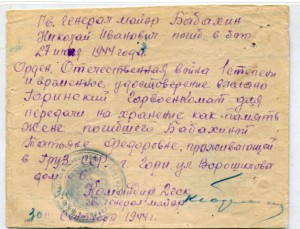 Гв. Генерал майор Бабахин
Николай Иванович погиб в бою
27 июня 1944 года
Орден Отечественная война I степени
и временное удостоверение выслано
Горийский Горвоенкомат для
передачи на хранение как память
Жене погибшего Бабахиной
Татьяне Федоровне, проживающей
в Груз. ССР. г. Гори ул Ворошилова
дом №
Командир 2 гск
Гв генерал майор
30 1944 г.